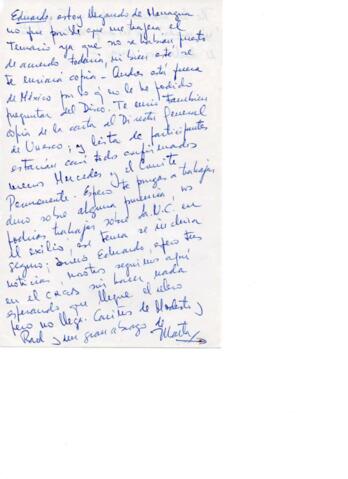 Eduardo: estoy llegando de Managua
no pude que me trajera el
Temario ya que no se habían puesto
de acuerdo todavía, ni bien esté se
te enviará copia - Andrés está fuera
de México por lo q' no le he podido
preguntar del Disco. Te envío también
copia de la carta al Director General
de Unesco, y lista de participantes
estarían casi todos confirmados
menos Mercedes y el Comité
Permanente. Espero te pongas a trabajar
duro sobre alguna ponencia, vos
podrías trabajar sobre la U.C. en
el exilio, ese tema se incluirá
seguro; Bueno Eduardo, espero tus
noticias, nosotros seguimos aquí
en el sin hacer nada
esperando que llegue el
pero no llega. Cariños de Modesto y
Raul y un gran abrazo de
Marta